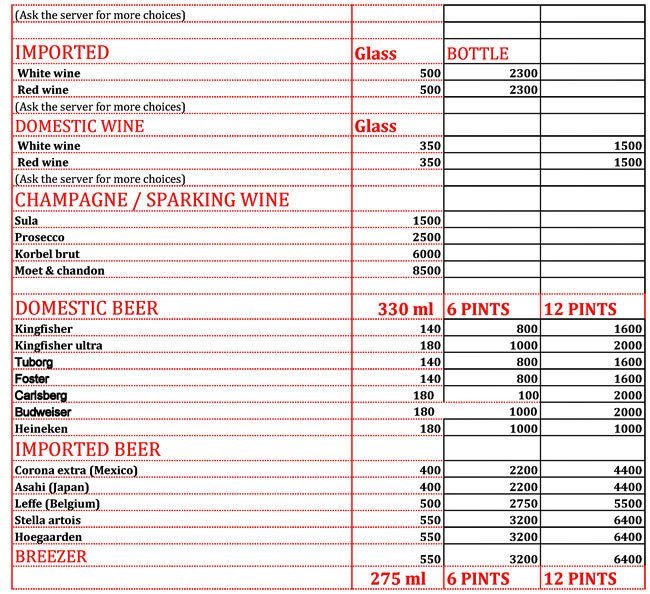 (Ask the server for more choices)
IMPORTED Glass BOTTLE
White wine 500 2300
Red wine 500 2300
(Ask the server for more choices)
DOMESTIC WINE Glass
White wine 350 1500
Red wine 350 1500
(Ask the server for more choices)
CHAMPAGNE / SPARKING WINE
Sula 1500
Prosecco 2500
Korbel brut 6000
Moet & chandon 8500
DOMESTIC BEER 330 ml 6 PINTS 12 PINTS
Kingfisher 140 800 1600
Kingfisher ultra 180 1000 2000
Tuborg 140 800 1600
Foster 140 800 1600
Carlsberg 180 100 2000
Budweiser 180 1000 2000
Heineken 180 1000 1000
IMPORTED BEER
Corona extra (Mexico) 400 2200 4400
Asahi (Japan) 400 2200 4400
Leffe (Belgium) 500 2750 5500
Stella artois 550 3200 6400
Hoegaarden 550 3200 6400
BREEZER 550 3200 6400
275 ml 6 PINTS 12 PINTS